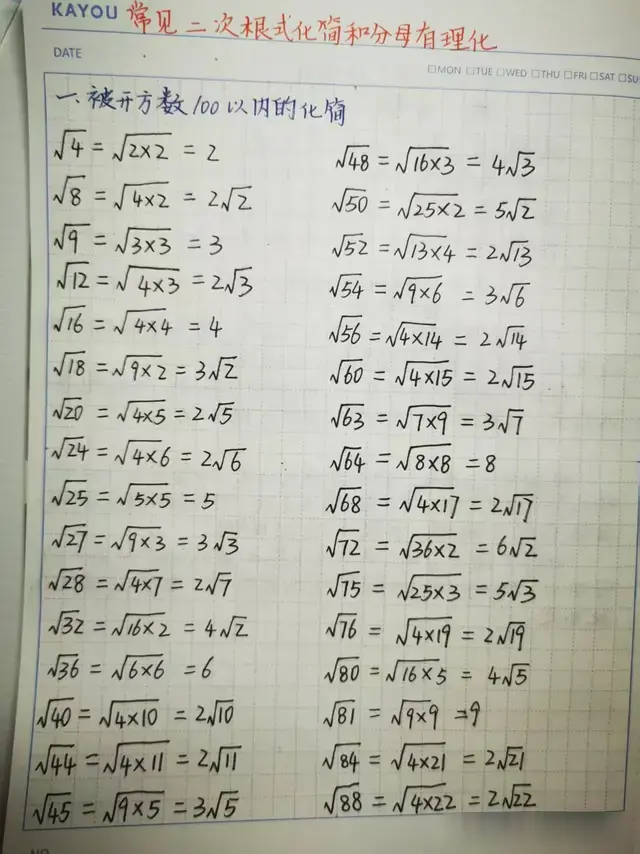 KAYOU 常见二次根式化简和分母有理化
DATE
□MON □TUE □WED □THU □FRI □SAT □SU
一.被开方数100以内的化简
√4 = √2×2 = 2
√8 = √4×2 = 2√2
√9 = √3×3 = 3
√12 = √4×3 = 2√3
√16 = √4×4 = 4
√18 = √9×2 = 3√2
√20 = √4×5 = 2√5
√24 = √4×6 = 2√6
√25 = √5×5 = 5
√27 = √9×3 = 3√3
√28 = √4×7 = 2√7
√32 = √16×2 = 4√2
√36 = √6×6 = 6
√40 = √4×10 = 2√10
√44 = √4×11 = 2√11
√45 = √9×5 = 3√5
√48 = √16×3 = 4√3
√50 = √25×2 = 5√2
√52 = √13×4 = 2√13
√54 = √9×6 = 3√6
√56 = √4×14 = 2√14
√60 = √4×15 = 2√15
√63 = √7×9 = 3√7
√64 = √8×8 = 8
√68 = √4×17 = 2√17
√72 = √36×2 = 6√2
√75 = √25×3 = 5√3
√76 = √4×19 = 2√19
√80 = √16×5 = 4√5
√81 = √9×9 = 9
√84 = √4×21 = 2√21
√88 = √4×22 = 2√22